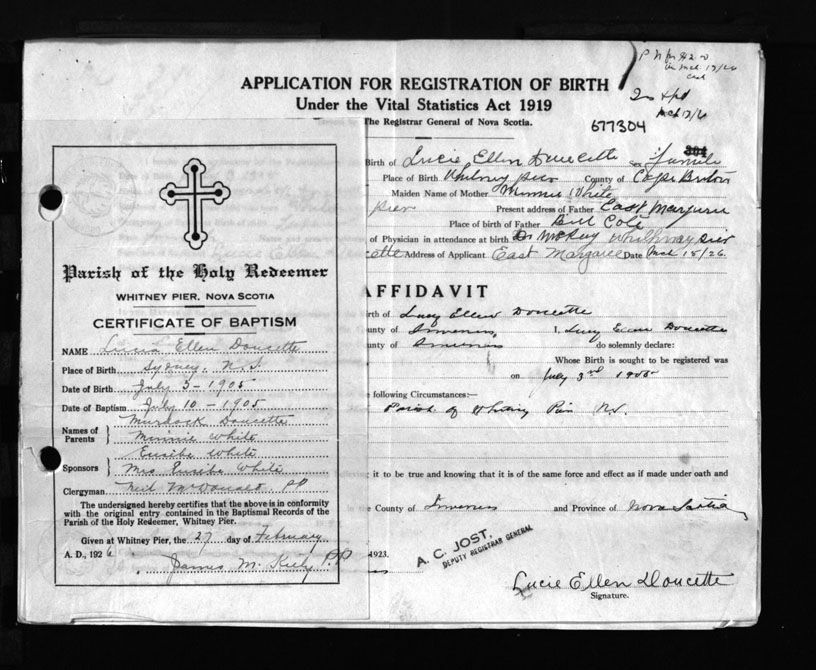 APPLICATION FOR REGISTRATION OF BIRTH
Under the Vital Statistics Act 1919
The Registrar General of Nova Scotia.
677304
304
Birth of Lucie Ellen Doucette Sex Female
Place of Birth Whitney pier County of Cape Breton
Maiden Name of Mother Minnie White
pier Present address of Father East Margaree
Place of birth of Father
of Physician in attendance at birth Dr McKay Whitney pier
Address of Applicant East Margaree Date Mch 15/26.
AFFIDAVIT
Birth of Lucy Ellen Doucette
County of Inverness, I, Lucy Ellen Doucette
County of Inverness do solemnly declare:
Whose Birth is sought to be registered was
on July 3rd 1905
following Circumstances:—
Parish of Whitney Pier N.S.
it to be true and knowing that it is of the same force and effect as if made under oath and
the County of Inverness and Province of Nova Scotia
1923.
A. C. JOST,
DEPUTY REGISTRAR GENERAL
Lucie Ellen Doucette
Signature.
Parish of the Holy Redeemer
WHITNEY PIER, NOVA SCOTIA
CERTIFICATE OF BAPTISM
NAME Lucie Ellen Doucette
Place of Birth Sydney, N.S.
Date of Birth July 3 - 1905
Date of Baptism July 10 - 1905
Names of Parents Murdock Doucette
Minnie White
Sponsors Eusibe White
Mrs Eusibe White
Clergyman Neil McDonald. PP
The undersigned hereby certifies that the above is in conformity
with the original entry contained in the Baptismal Records of the
Parish of the Holy Redeemer, Whitney Pier.
Given at Whitney Pier, the 27 day of February
A. D., 1926
James M. Kiely P.P.